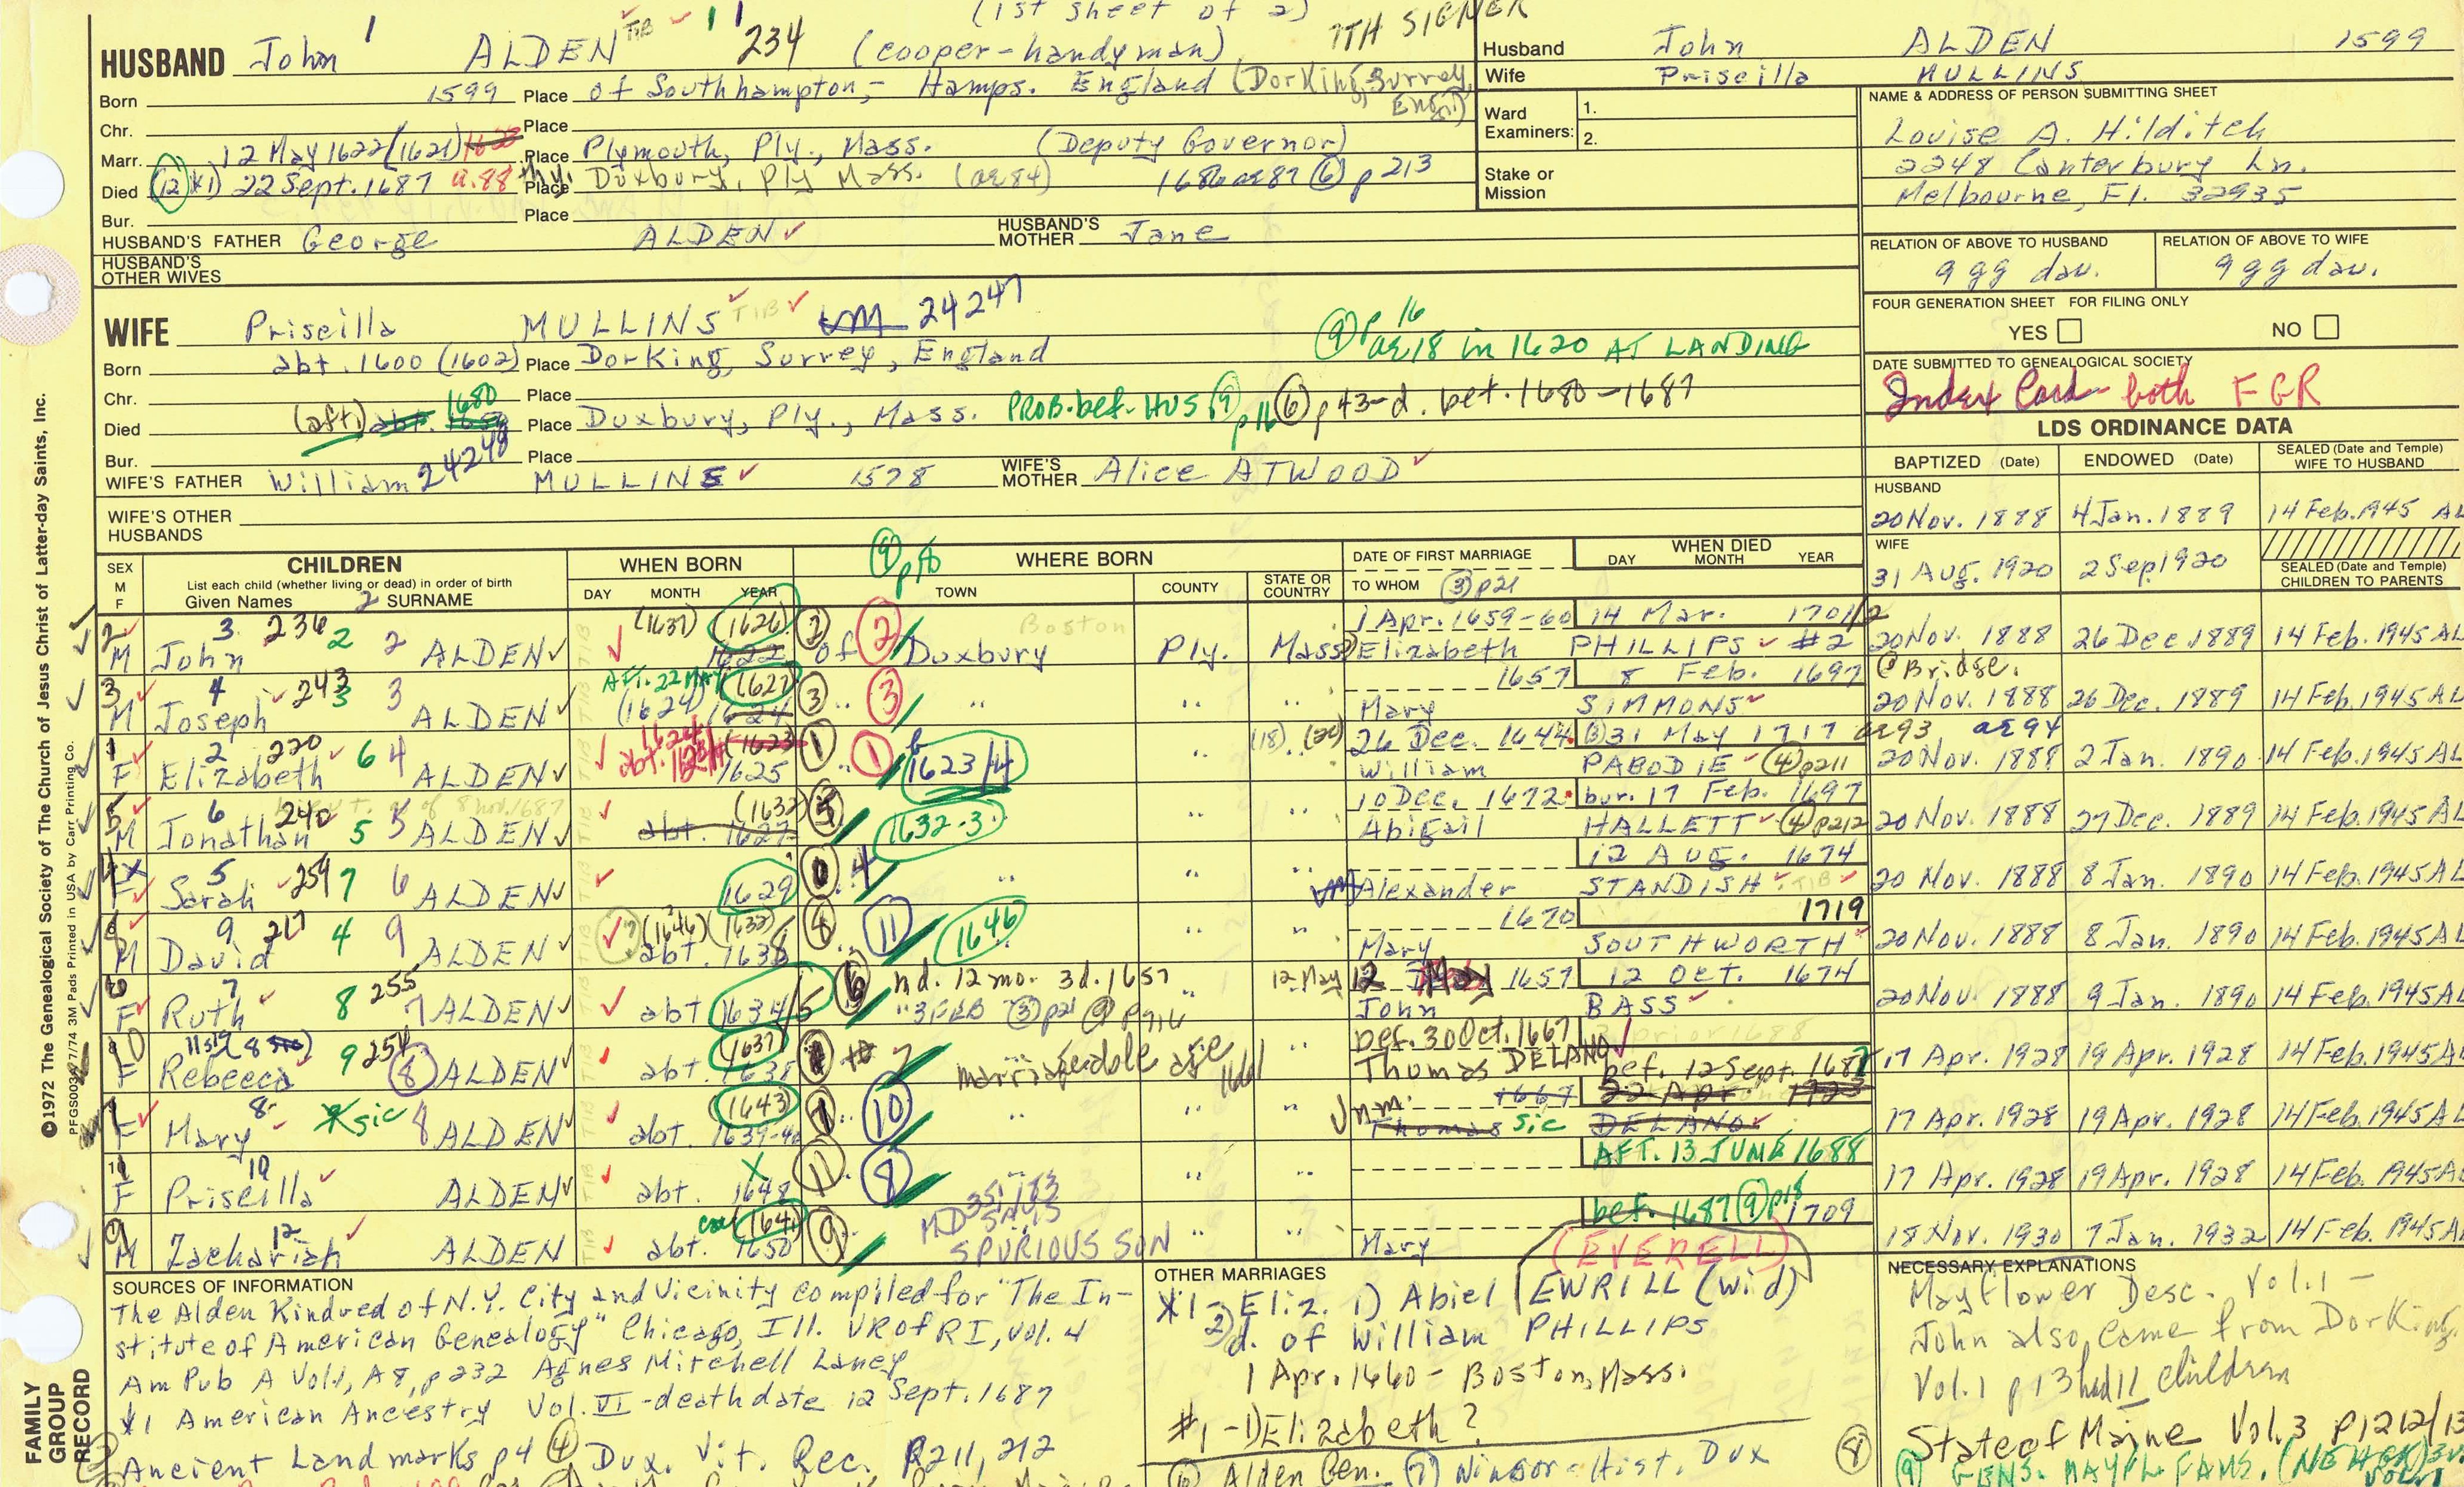 (1st sheet of 2)
7TH SIGNER
HUSBAND John 1 ALDEN TIB 11 234 (cooper-handyman)
Born 1599 Place of Southhampton, Hamps. England (Dorking, Surrey, Eng.)
Chr. Place
Marr. 12 May 1622 (1621) Place Plymouth, Ply., Mass. (Deputy Governor)
Died (12) *1) 22 Sept. 1687 a.88 Place Duxbury, Ply Mass. (ae 84) 1686 or 87 (6) p 213
Bur. Place
HUSBAND'S FATHER George ALDEN HUSBAND'S MOTHER Jane
HUSBAND'S OTHER WIVES
Husband John ALDEN 1599
Wife Priscilla MULLINS
Ward Examiners: 1.
2.
Stake or Mission
NAME & ADDRESS OF PERSON SUBMITTING SHEET
Louise A. Hilditch
2248 Canterbury Ln.
Melbourne, Fl. 32935
RELATION OF ABOVE TO HUSBAND RELATION OF ABOVE TO WIFE
9 gg dau. 9 gg dau.
FOUR GENERATION SHEET FOR FILING ONLY
YES NO
DATE SUBMITTED TO GENEALOGICAL SOCIETY
Index Card both FGR
WIFE Priscilla MULLINS TIB 24247
(9) p 16
ae 18 in 1620 AT LANDING
Born abt. 1600 (1602) Place Dorking, Surrey, England
Chr. Place
Died (aft) abt. 1680 Place Duxbury, Ply., Mass. PROB. bef. HUS. (9) p16 (6) p43-d. bet. 1680-1687
Bur. Place
WIFE'S FATHER William 24248 MULLINS 1578 WIFE'S MOTHER Alice ATWOOD
WIFE'S OTHER HUSBANDS
LDS ORDINANCE DATA
BAPTIZED (Date) ENDOWED (Date) SEALED (Date and Temple) WIFE TO HUSBAND
HUSBAND
20 Nov. 1888 4 Jan. 1889 14 Feb. 1945 AL
WIFE
31 Aug. 1920 2 Sep 1920
SEALED (Date and Temple) CHILDREN TO PARENTS
SEX M F
CHILDREN
List each child (whether living or dead) in order of birth
Given Names SURNAME
WHEN BORN
DAY MONTH YEAR
WHERE BORN
TOWN COUNTY STATE OR COUNTRY
DATE OF FIRST MARRIAGE
TO WHOM (3) p21
WHEN DIED
DAY MONTH YEAR
2 M John 3 236 2 2 ALDEN (1637) (1626) 1622 (2) of (2) Duxbury Boston Ply. Mass 1 Apr. 1659-60 14 Mar. 1701/2
Elizabeth PHILLIPS #2 20 Nov. 1888 26 Dec. 1889 14 Feb. 1945 AL
3 M Joseph 4 243 3 3 ALDEN AFT. 22 MAY (1627) (1624) 1624 (3) (3) 1657 8 Feb. 1697 @ Bridge.
Mary SIMMONS 20 Nov. 1888 26 Dec. 1889 14 Feb. 1945 AL
1 F Elizabeth 2 220 6 4 ALDEN abt. 1624 (1623) 1625 (1) (1) b 1623/4 (18) 26 Dec. 1644 (3) 31 May 1717 ae 93 ae 94
William PABODIE (4) p211 20 Nov. 1888 2 Jan. 1890 14 Feb. 1945 AL
5 M Jonathan 6 240 5 5 ALDEN (1632) abt. 1627 (5) 1632-3 10 Dec. 1672 bur. 17 Feb. 1697
Abigail HALLETT (4) p212 20 Nov. 1888 27 Dec. 1889 14 Feb. 1945 AL
4 F Sarah 5 259 7 6 ALDEN 1629 4 12 Aug. 1674
Alexander STANDISH TIB 20 Nov. 1888 8 Jan. 1890 14 Feb. 1945 AL
M David 9 217 4 9 ALDEN (1646) abt. 1638 (11) 1646 1670 1719
Mary SOUTHWORTH 20 Nov. 1888 8 Jan. 1890 14 Feb. 1945 AL
F Ruth 7 8 255 7 ALDEN abt 1634/5 (6) nd. 12 mo. 3d. 1657 12 May 12 May 1657 12 Oct. 1674
3 FEB (3) p21 (9) p. 16 John BASS 20 Nov. 1888 9 Jan. 1890 14 Feb. 1945 AL
F Rebecca 9 254 (8) ALDEN (1637) abt. 1638 marriageable age 1661 bef. 30 Oct. 1667 prior 1688
Thomas DELANO bef. 12 Sept. 1687 17 Apr. 1928 19 Apr. 1928 14 Feb. 1945 AL
F Mary 8 sic 8 ALDEN (1643) abt. 1639-40 (10) unm. 1667 22 Apr 1723
Thomas sic DELANO 17 Apr. 1928 19 Apr. 1928 14 Feb. 1945 AL
F Priscilla 10 ALDEN abt. X 1648 (11) (8) AFT. 13 JUNE 1688
17 Apr. 1928 19 Apr. 1928 14 Feb. 1945 AL
9 M Zachariah 12 ALDEN (1641) abt. 1650 (9) MD 35:173 SAYS SPURIOUS SON bef. 1687 (9) p18 1709
Mary (EVERELL) 18 Nov. 1930 7 Jan. 1932 14 Feb. 1945 AL
SOURCES OF INFORMATION
The Alden Kindred of N.Y. City and Vicinity compiled for "The In-
stitute of American Genealogy" Chicago, Ill. VR of RI, Vol. 4
Am Pub A Vol 1, A8, p232 Agnes Mitchell Laney
*1 American Ancestry Vol. VI - death date 12 Sept. 1687
Ancient Landmarks p4 (4) Dux. Vit. Rec. P211, 212
OTHER MARRIAGES
*1-2) Eliz. 1) Abiel EWRILL (wid)
d. of William PHILLIPS
1 Apr. 1660 - Boston, Mass.
#1-1) Elizabeth?
(6) Alden Gen. (7) Winsor-Hist. Dux (8)
NECESSARY EXPLANATIONS
Mayflower Desc. Vol. 1 -
John also came from Dorking.
Vol. 1 p 13 had 11 children
State of Maine Vol. 3 p1212/13
(9) GENS. MAYFL FAMS. (NEHGR) Vol. 1
FAMILY GROUP RECORD
©1972 The Genealogical Society of The Church of Jesus Christ of Latter-day Saints, Inc.
PFGS003 7/74 3M Pads Printed in USA by Carr Printing Co.